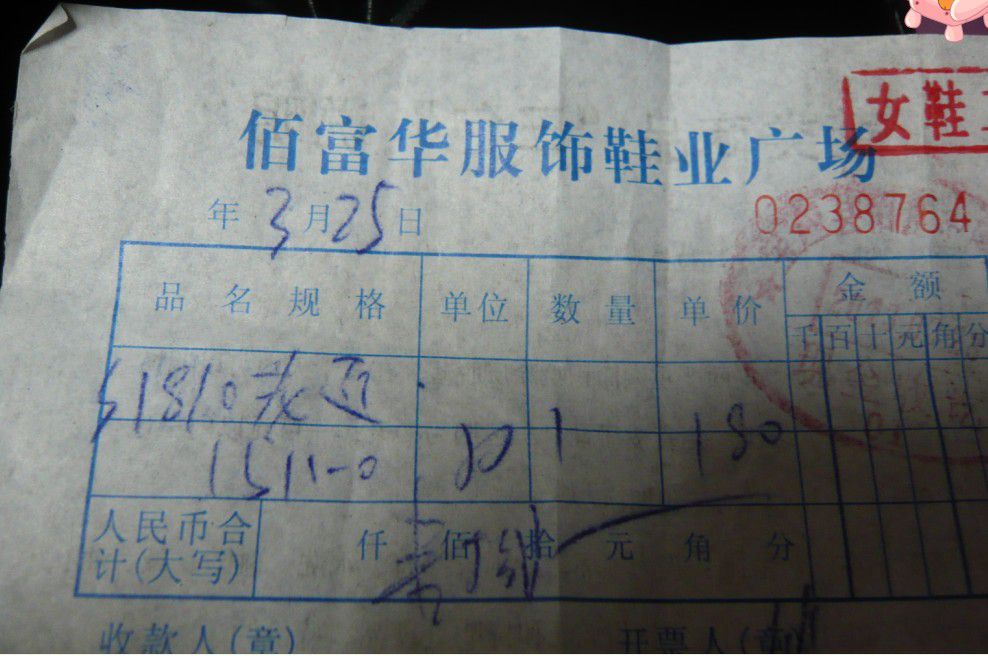 女鞋
佰富华服饰鞋业广场
年 3 月 25 日
0238764
品名规格 单位 数量 单价 金额
千 百 十 元 角 分
1 180
人民币合计(大写) 仟 佰 拾 元 角 分
收款人(章) 开票人(章)